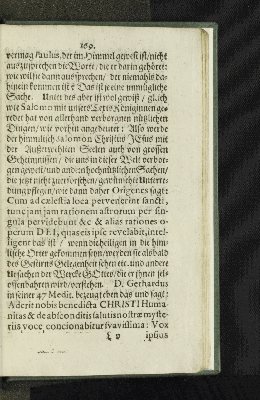 169.
vermag Paulus, der im Himmel gewest ist/ nicht
auszusprechen die Worte, die er darin gehöret:
wie wil sie dann aussprechen/ der niemahls da-
hinein kommen ist? Das ist je eine unmügliche
Sache. Unter des aber ist wol gewiß/ gleich
wie Salomo mit unsers Königinnen ge-
redet hat von allerhand verborgnen nützlichen
Dingen/ wie vorhin angedeutet: Also werde
der himmlisch Salomon Christus JEsus mit
der Außerwehlten Seelen auch von grossen
Geheimnussen/ die uns in dieser Welt verbor-
gen gewest/ und andern hochnützlichen Sachen/
die jetzt nicht zuerforschen/ gewünschte Unterre-
dung pflegen/ wie dann daher Origenes sagt:
Cum ad cælestia loca pervenerint sancti,
tunc jam jam rationem astrorum per sin-
gula pervidebunt &c & alias rationes o-
perum DEI, quas eis ipse revelabit, intel-
ligent das ist/ wenn die heiligen in die him-
lische Örter gekommen seyn/ werden sie alsbald
des Gestirns Gelegenheit sehen etc. und andere
Ursachen der Wercke GOttes/ die er ihnen selbs
offenbahren wird/ verstehen. D. Gerhardus
in seiner 47 Medit. bezeugt eben das und sagt:
Aderit nobis benedicta CHRISTI Huma-
nitas & de absconditis salutis nostræ myste-
riis voce concionabitur svavissima: Vox
L v
ipsius